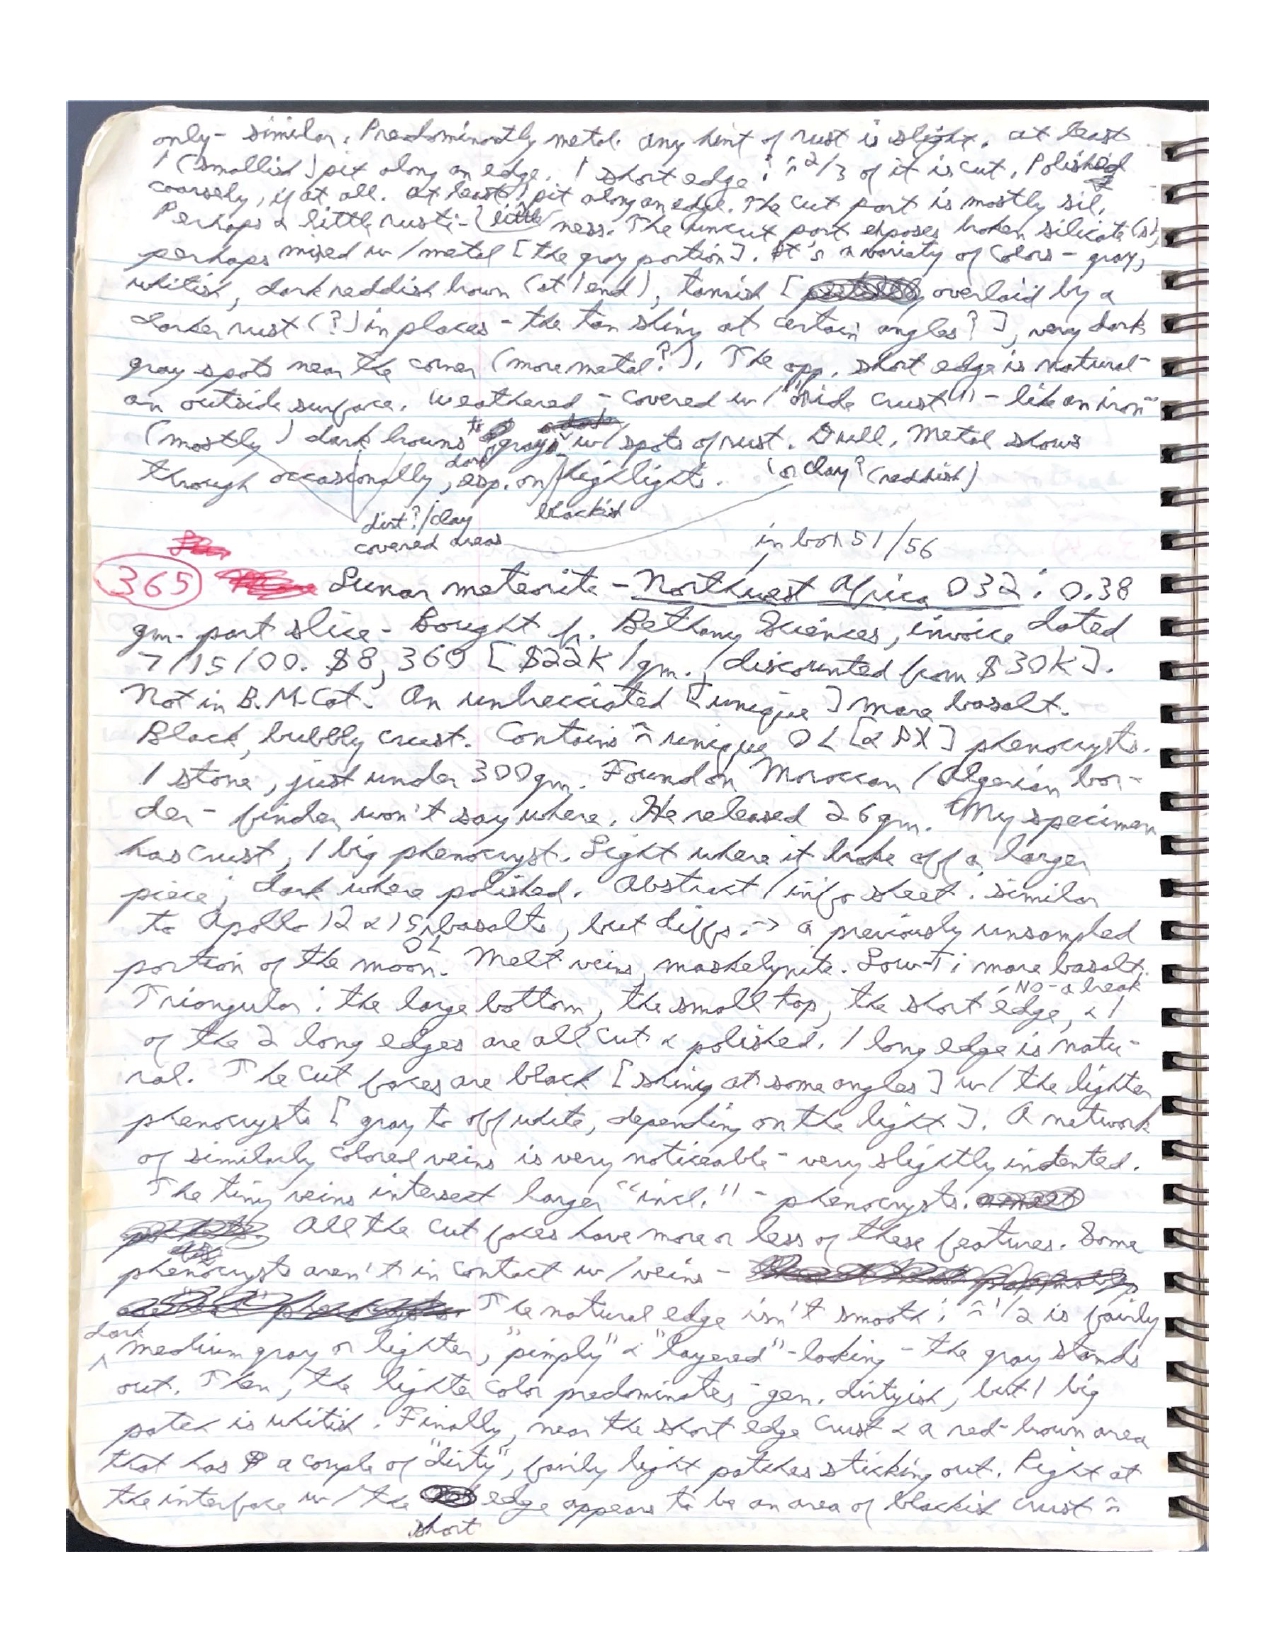 only - similar. Predominantly metal. Any hint of rust is slight. At least
1 (smallish) pit along an edge. 1 short edge: ≈ 2/3 of it is cut. Polished
coarsely, if at all. At least 1 pit along an edge. The cut part is mostly sil.
Perhaps a little rusti- (little) ness. The uncut part exposes broken silicate(s),
perhaps mixed w/metal [the gray portion]. It's a variety of colors - gray,
whitish, dark reddish brown (at 1 end), tannish [ overlaid by a
darker rust (?) in places - the tan shiny at certain angles?], very dark
gray spots near the corner (more metal?). The opp. short edge is natural -
an outside surface. Weathered - covered w/ "oxide crust" - like an iron -
(mostly) dark browns to grays w/spots of rust. Dull. Metal shows
dark
through occasionally, esp. on highlights. (or clay? (reddish)
dirt?/clay blackish
covered areas
in box 51/56
365 Lunar meteorite - Northwest Africa 032: 0.38
gm. part slice - Bought fr. Bethany Sciences, invoice dated
7/15/00. $8,360 [$22K/gm., discounted from $30K].
Not in B.M.Cat. An unbrecciated [unique] mare basalt.
Black, bubbly crust. Contains ≈ unique OL [& PX] phenocrysts.
1 stone, just under 300gm. Found on Moroccan/Algerian bor-
der - finder won't say where. He released 26gm. My specimen
has crust, 1 big phenocryst. Light where it broke off a larger
piece; dark where polished. Abstract/info sheet. Similar
to Apollo 12 & 15 OL basalts, but diffs. → a previously unsampled
portion of the moon. Melt veins, maskelynite. Low-Ti mare basalt.
No - a break
Triangular: the large bottom, the small top, the short edge, & 1
of the 2 long edges are all cut & polished. 1 long edge is natu-
ral. The cut faces are black [shiny at some angles] w/ the lighter
phenocrysts [gray to off white, depending on the light]. A network
of similarly colored veins is very noticeable - very slightly indented.
The tiny veins intersect larger "incl." - phenocrysts.
All the cut faces have more or less of these features. Some
phenocrysts aren't in contact w/veins -
The natural edge isn't smooth: ≈ 1/2 is fairly
dark
medium gray or lighter, "pimply" & "layered" - looking - the gray stands
out. Then, the lighter color predominates - gen. dirtyish, but 1 big
patch is whitish. Finally, near the short edge crust & a red-brown area
that has a couple of "dirty", fairly light patches sticking out. Right at
the interface w/ the short edge appears to be an area of blackish crust ≈